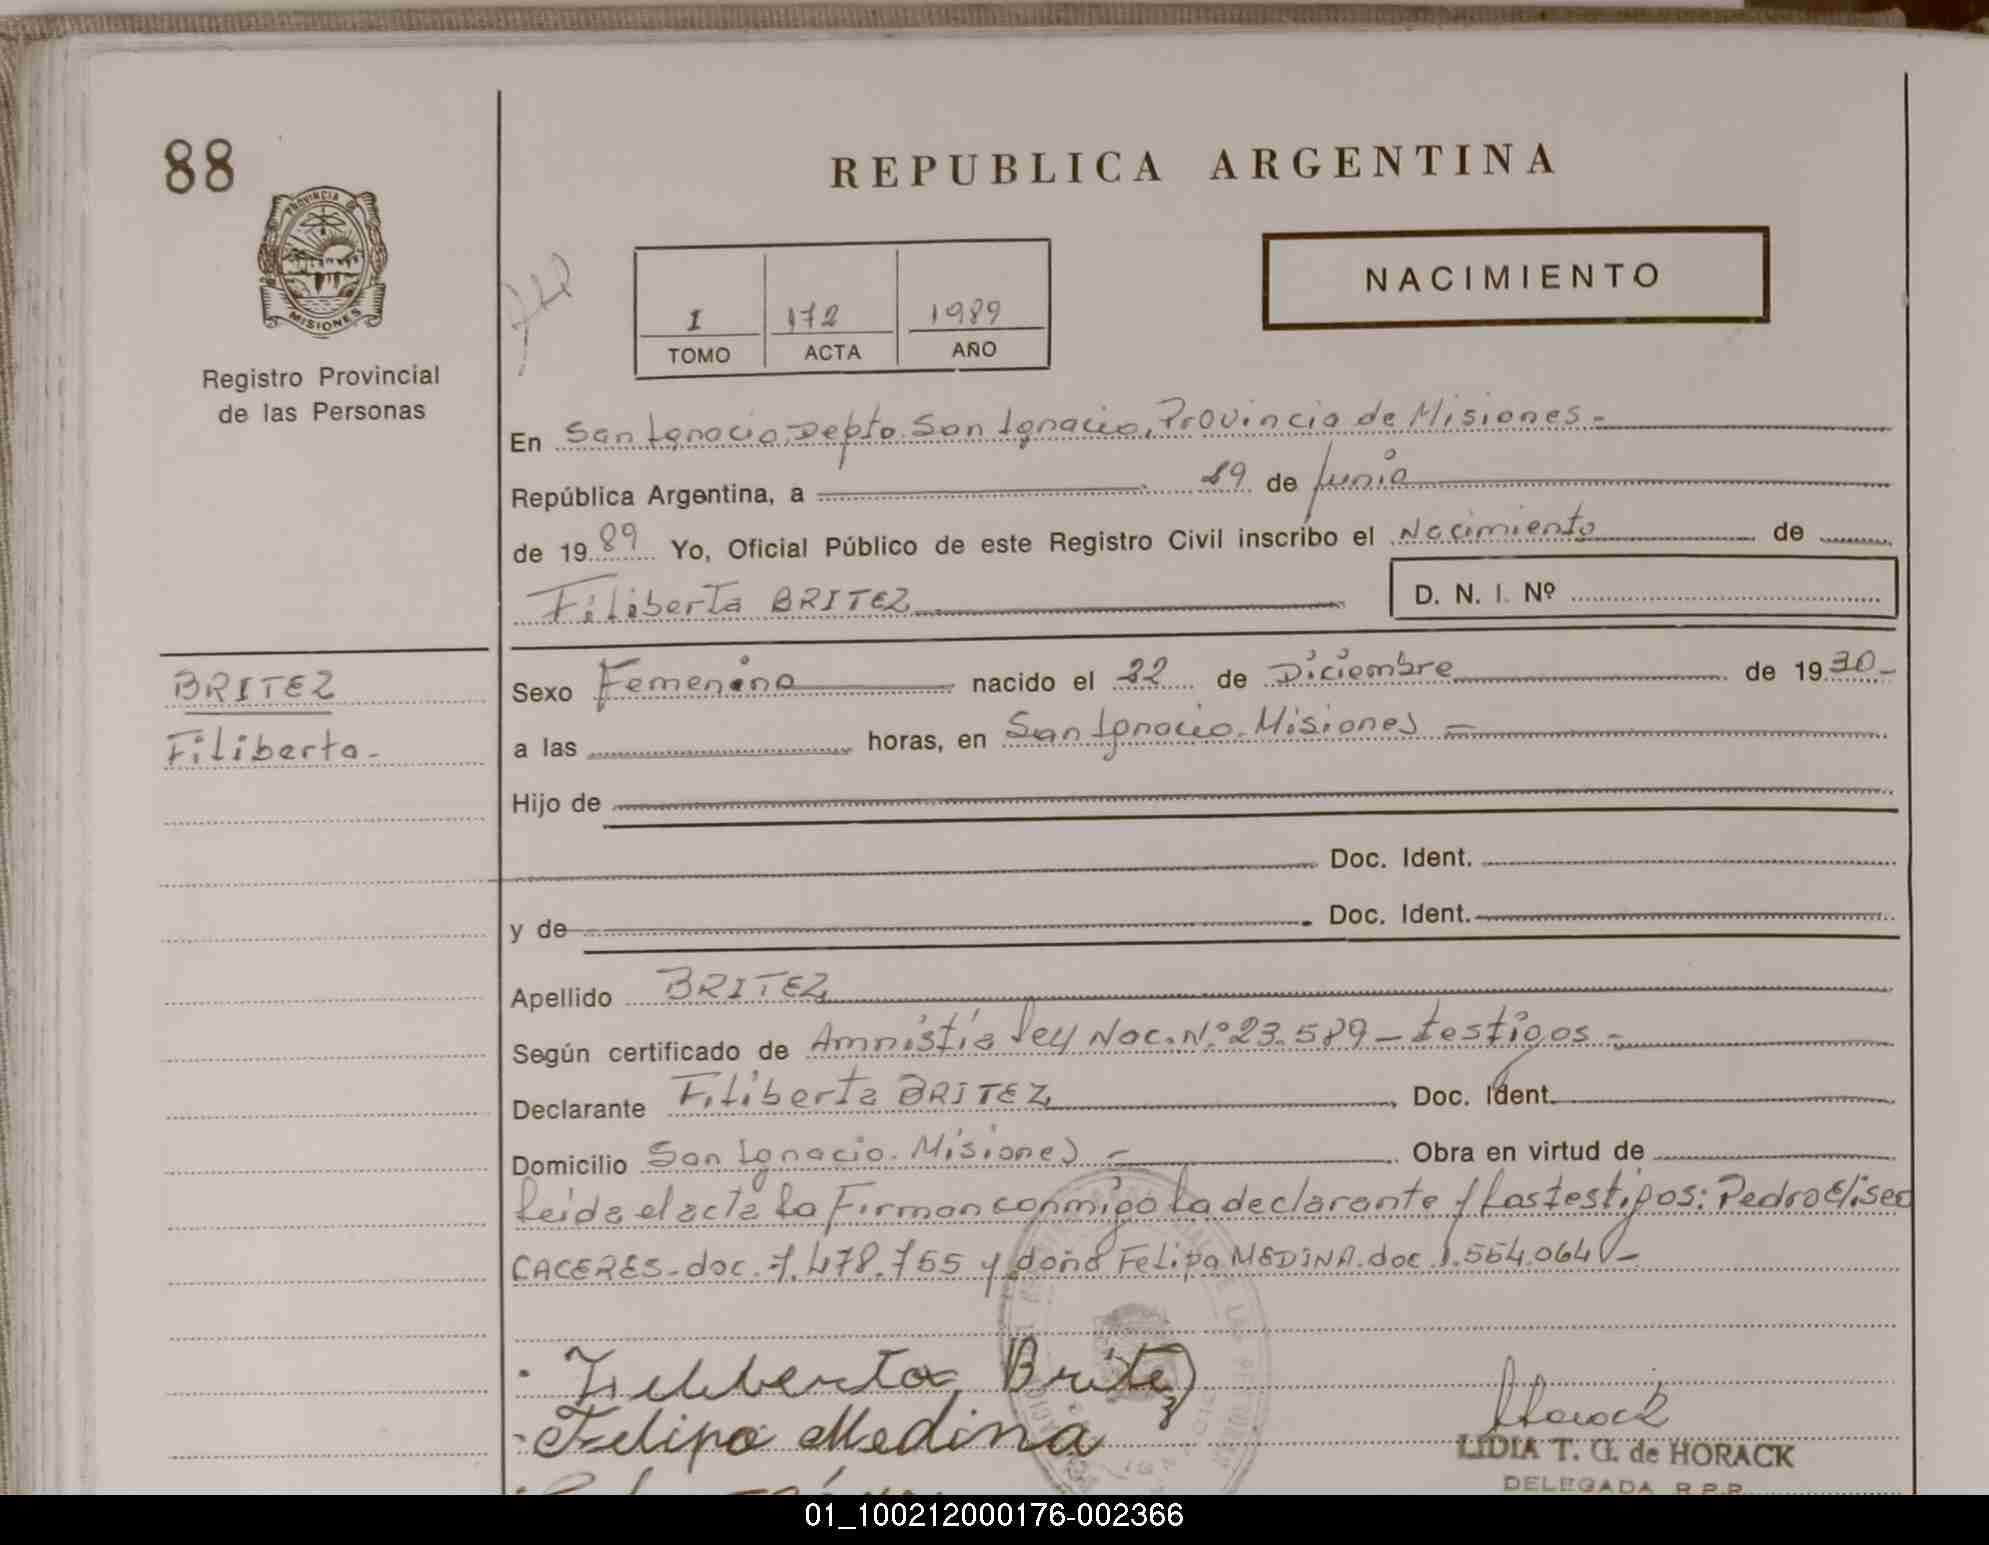 88
REPUBLICA ARGENTINA
PROVINCIA DE
MISIONES
Registro Provincial
de las Personas
NACIMIENTO
I 172 1989
TOMO ACTA AÑO
En San Ignacio, Depto. San Ignacio, Provincia de Misiones.-
República Argentina, a 29 de Junio
de 1989 Yo, Oficial Público de este Registro Civil inscribo el Nacimiento de
Filiberta BRITEZ
D. N. I. Nº
BRITEZ
Filiberta.
Sexo Femenino nacido el 22 de Diciembre de 1930-
a las horas, en San Ignacio. Misiones -
Hijo de
Doc. Ident.
y de Doc. Ident.
Apellido BRITEZ
Según certificado de Amnistía Ley Nac. Nº 23.589 - testigos -
Declarante Filiberta BRITEZ Doc. Ident.
Domicilio San Ignacio. Misiones - Obra en virtud de
Leida el acta la Firman conmigo la declarante y los testigos: Pedro Eliseo
CACERES-doc. 7.478.755 y doña Felipa MEDINA. doc 1.554.064 -
Filiberta Britez
Felipa Medina
Horack
LIDIA T. G. de HORACK
DELEGADA R.P.P.
01_100212000176-002366